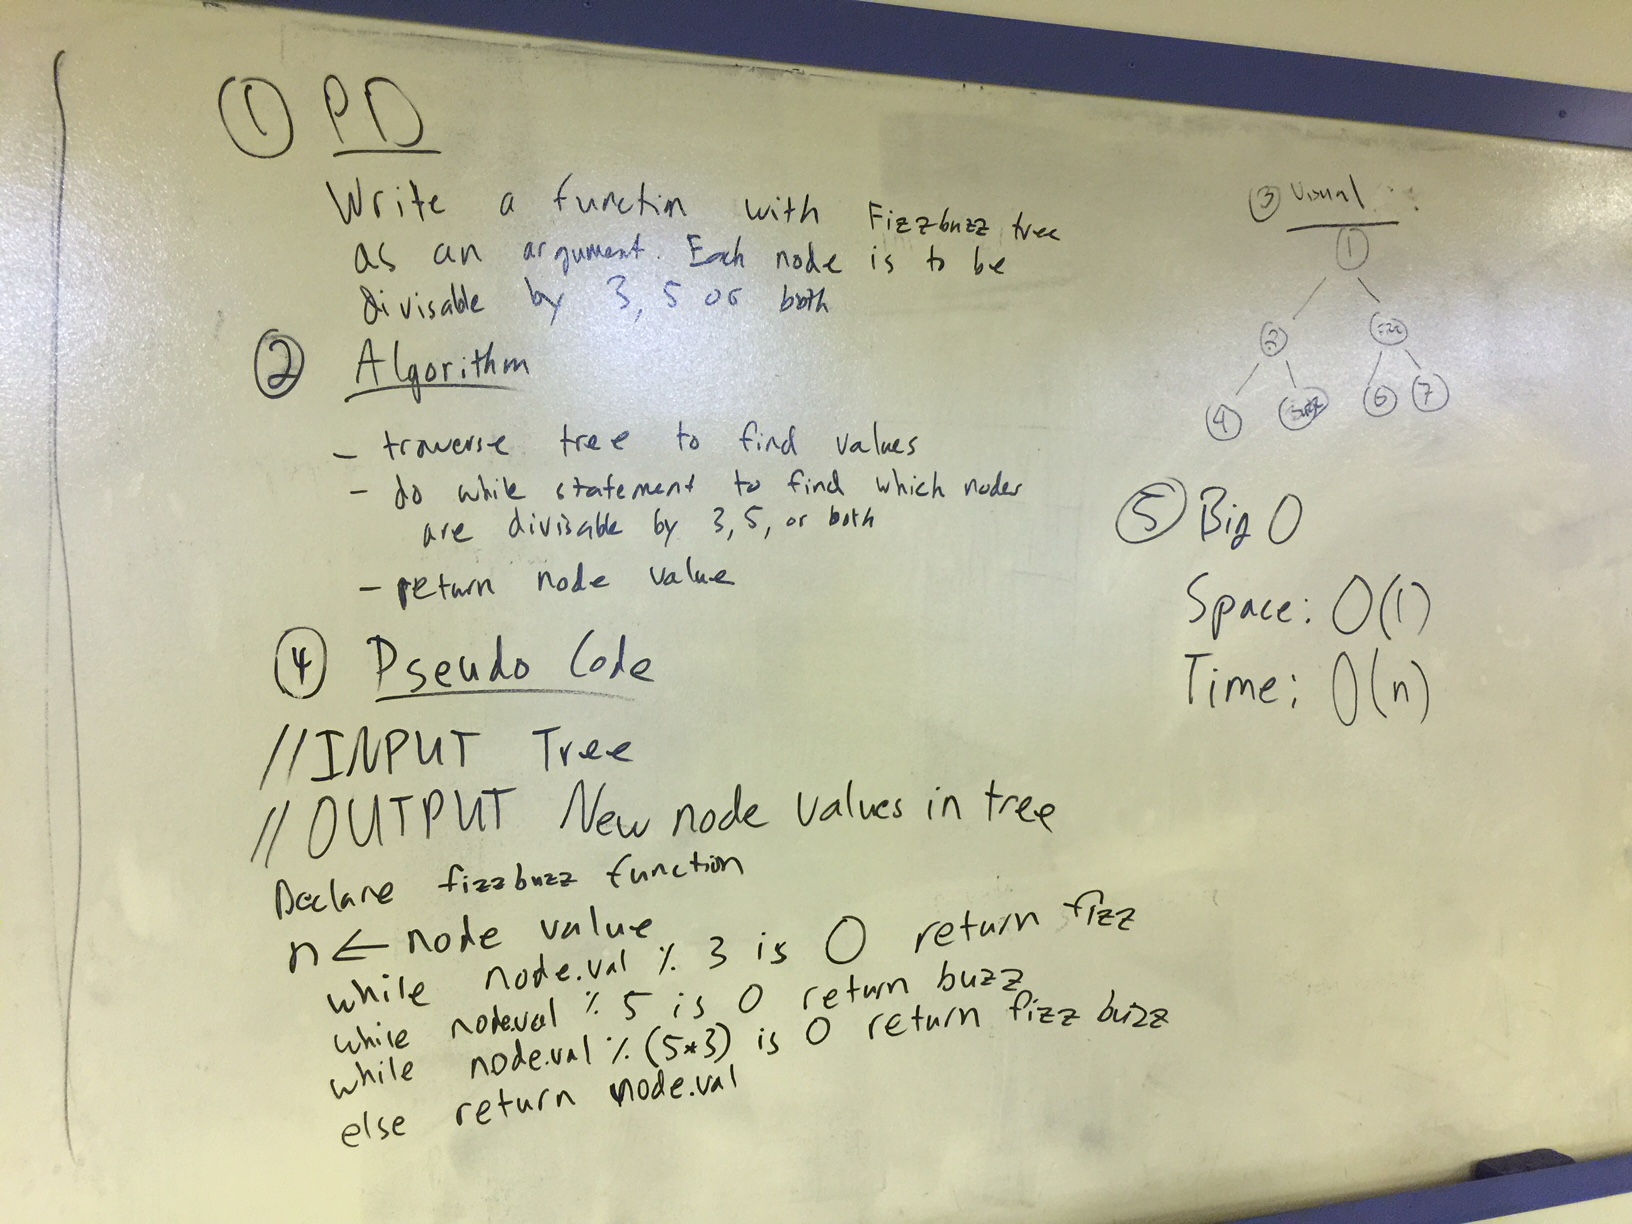 ① PD
Write a function with Fizzbuzz tree
as an argument. Each node is to be
divisable by 3, 5 or both
② Algorithm
- traverse tree to find values
- do while statement to find which nodes
are divisable by 3, 5, or both
- return node value
③ Visual
1
2
4 buzz 6 7
④ Pseudo Code
//INPUT Tree
//OUTPUT New node values in tree
Declare fizzbuzz function
n ← node value
while node.val % 3 is 0 return fizz
while node.val % 5 is 0 return buzz
while node.val % (5*3) is 0 return fizz buzz
else return node.val
⑤ Big O
Space: O(1)
Time: O(n)